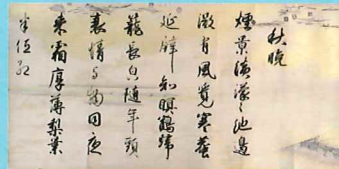 秋晚
煙景澹濛〻池邊
微有風覺寒蛩
近壁知暝鶴歸
籠長皃随年改
衰情与物同夜
来霜厚薄梨葉
半低紅